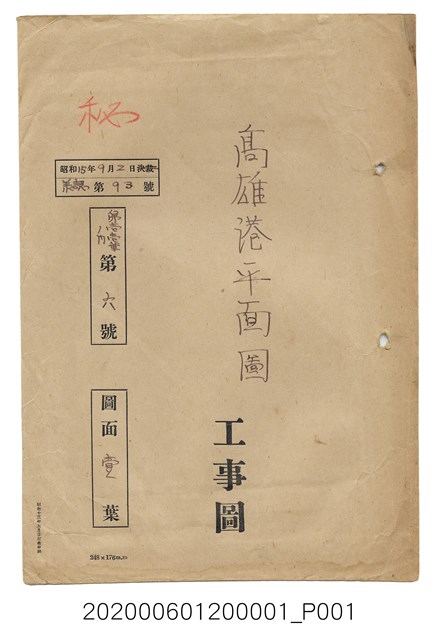 秘
高雄港平面圖
工事圖
昭和15年9月2日決裁
第93號
第六號
圖面壹葉
248×176m.m
202000601200001_P001